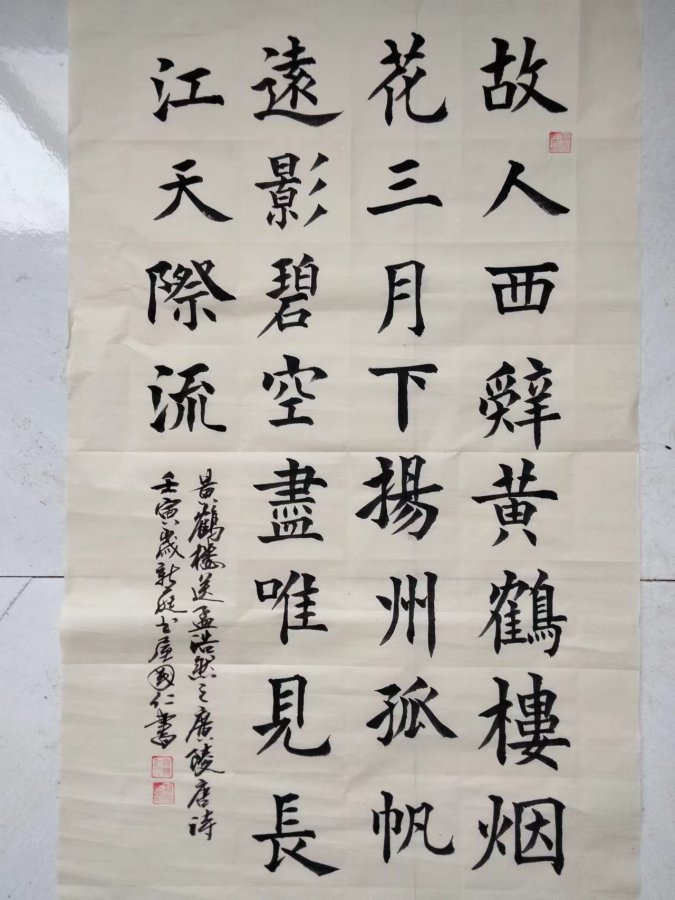 故人西辤黄鶴樓烟
花三月下揚州孤帆
遠影碧空盡唯見長
江天際流
黄鶴樓送孟浩然之廣陵唐詩
壬寅歲新庭書屋國仁書